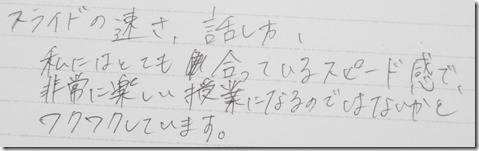 スライドの速さ、話し方、
私にはとても合っているスピード感で、
非常に楽しい授業になるのではないかと
ワクワクしています。